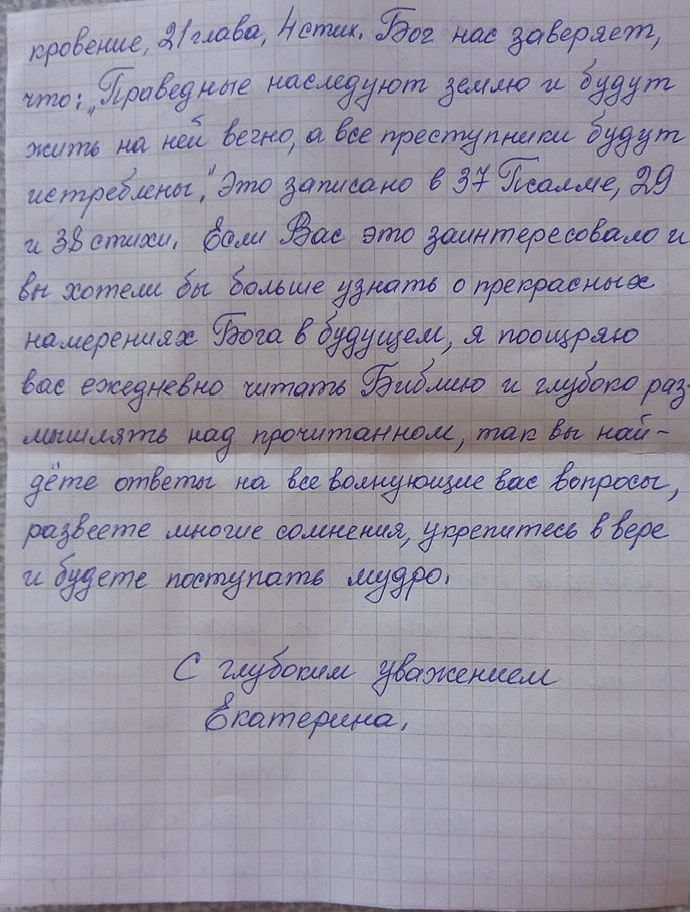 кровение, 21 глава, 4 стих. Бог нас заверяет,
что: „Праведные наследуют землю и будут
жить на ней вечно, а все преступники будут
истреблены". Это записано в 37 Псалме, 29
и 38 стихи. Если Вас это заинтересовало и
вы хотели бы больше узнать о прекрасных
намерениях Бога в будущем, я поощряю
вас ежедневно читать Библию и глубоко раз-
мышлять над прочитанном, так вы най-
дёте ответы на все волнующие вас вопросы,
развеете многие сомнения, укрепитесь в вере
и будете поступать мудро.
С глубоким уважением
Екатерина.